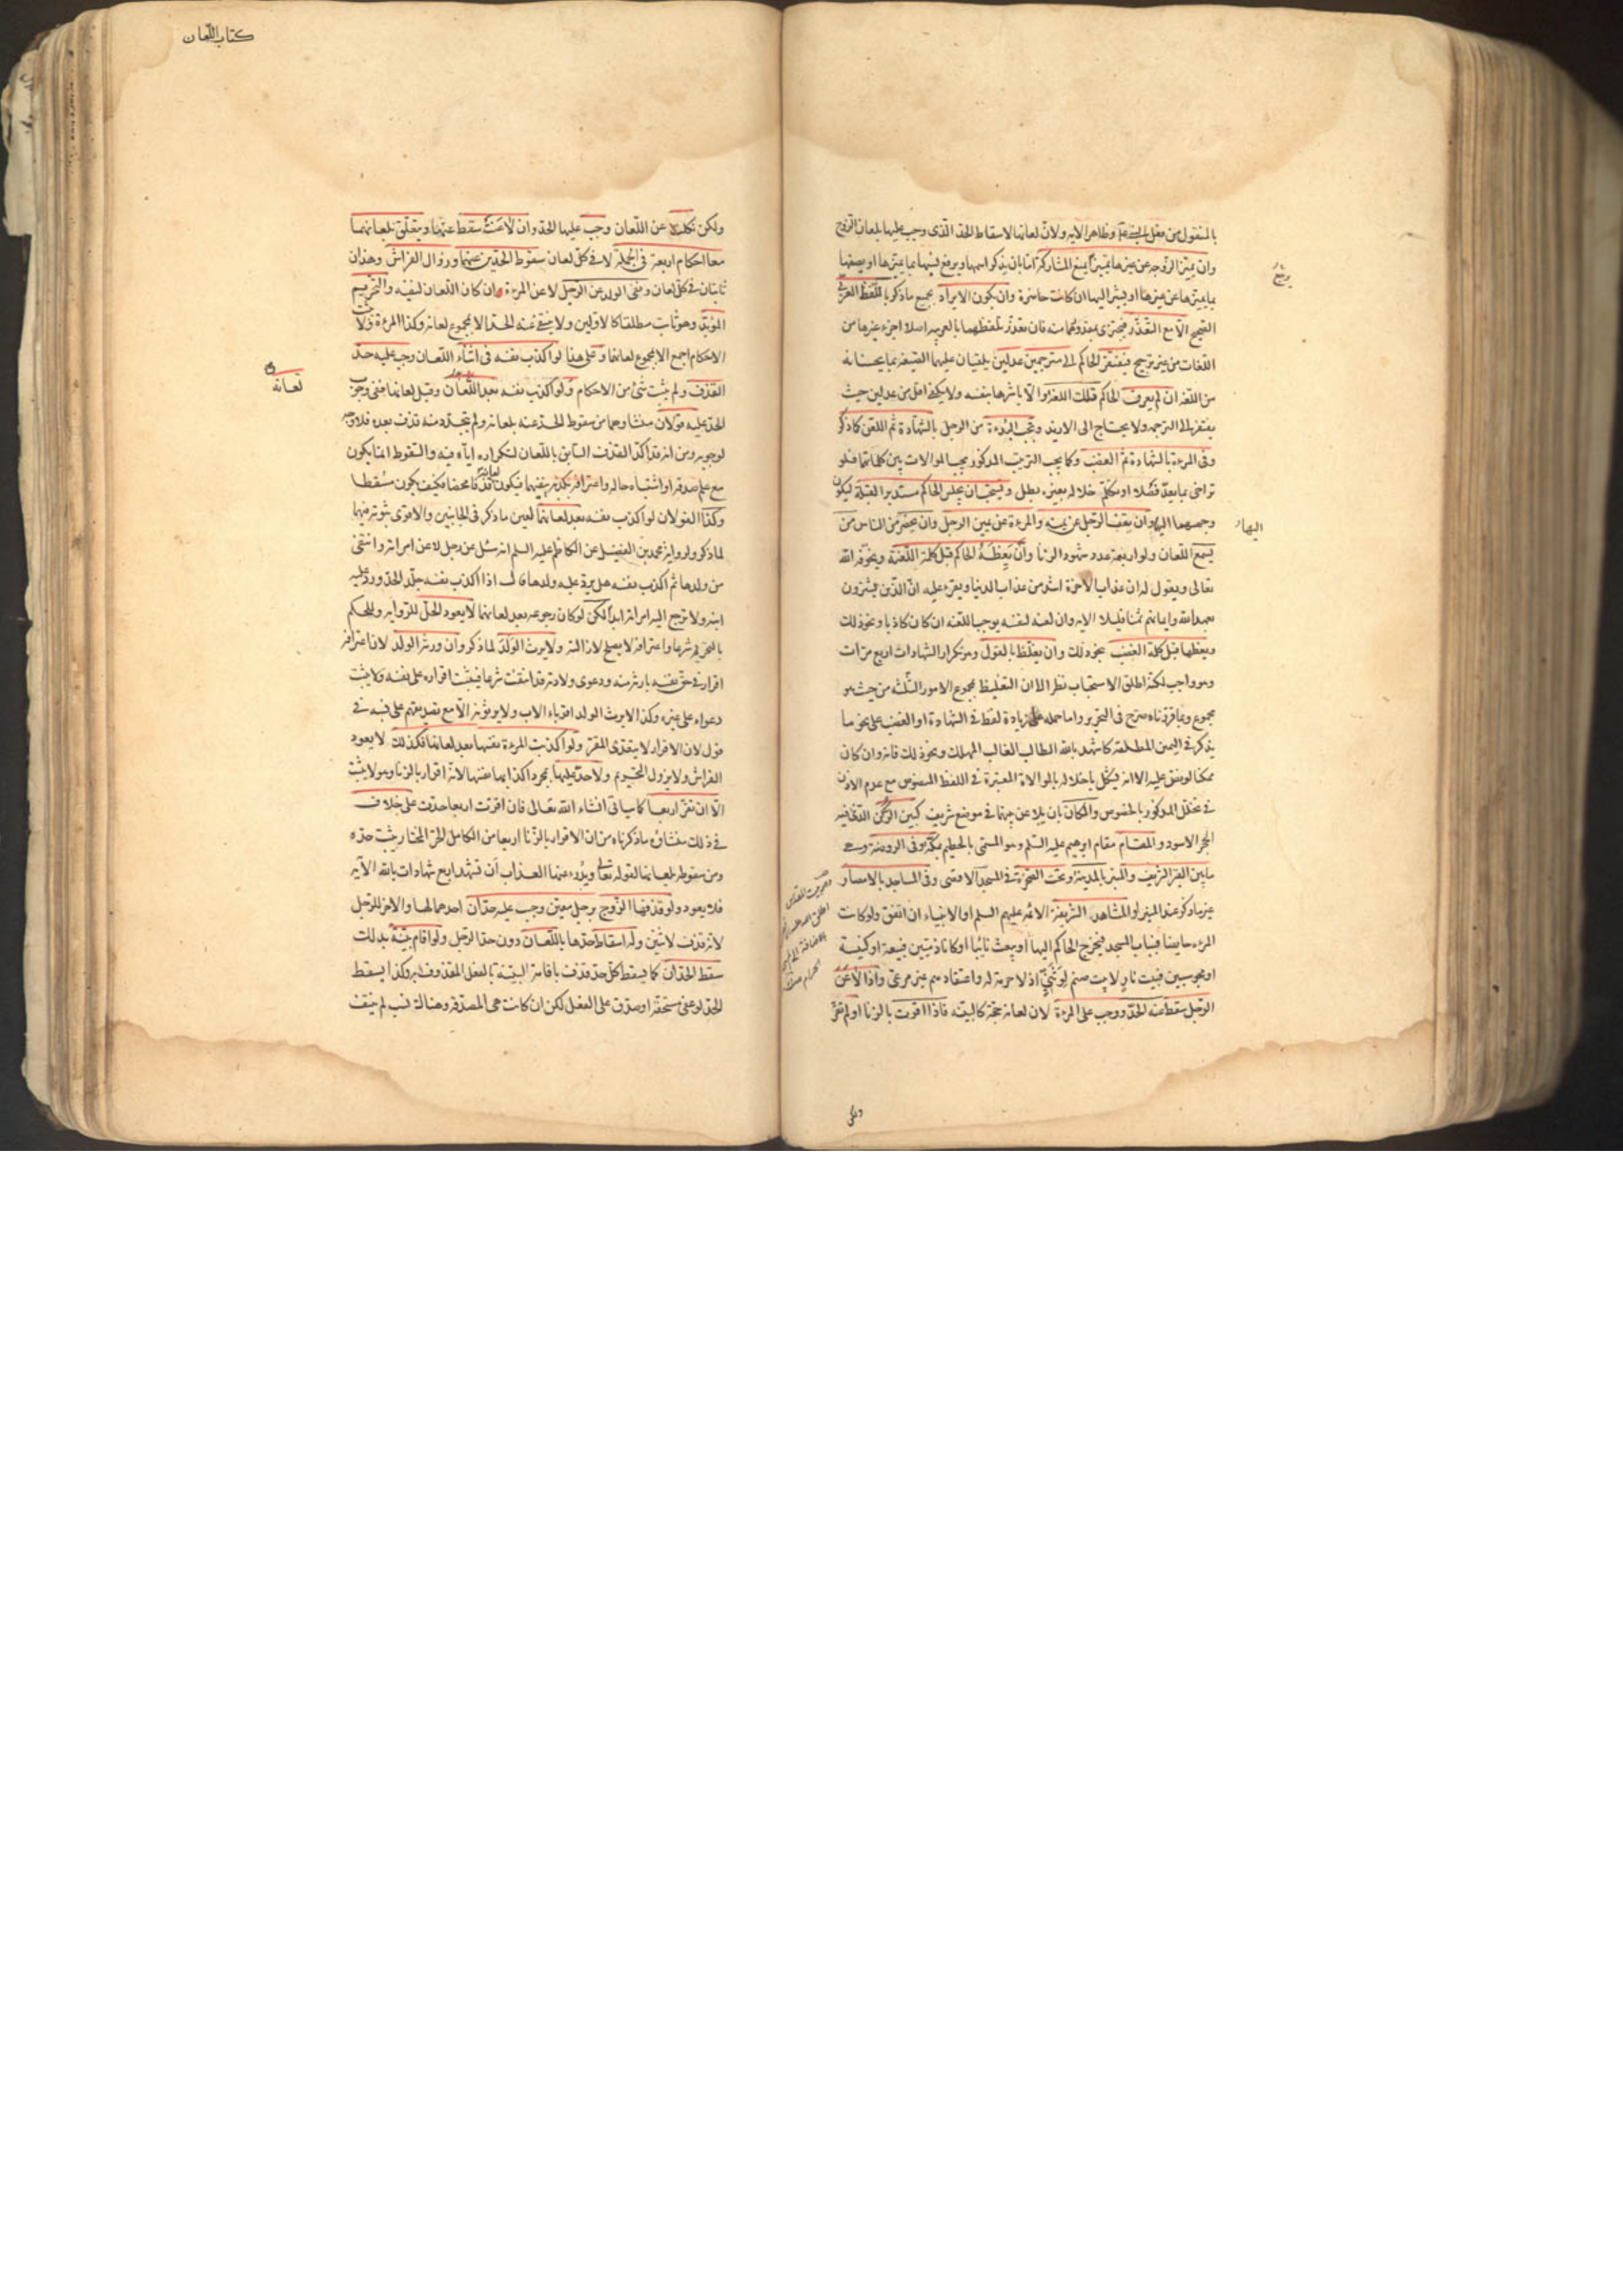 بالمنقول من فعل النبي ص وظاهر الآيه ولان لعانها لاسقاط الحد الذى وجب عليها بلعان الزوج
وان يميز الزوجه عن غيرها تميزا يمنع المشاركة اما بان يذكر اسمها ويرفع نسبها بما يميزها او يصفها
بما يميزها عن غيرها او يشير اليها ان كانت حاضرة وان يكون الايراد بجميع ما ذكر باللفظ العربى
الصحيح الا مع التعذر فيجتزى بمقدورهما منه فان تعذر تلفظهما بالعربيه اصلا اجزء غيرها من
اللغات من غير ترجيح فيفتقر الحاكم الى مترجمين عدلين يلقيان عليهما الصيغه بما يحسنانه
من اللغه ان لم يعرف الحاكم تلك اللغه والا باشرها بنفسه ولا يكفى اقل من عدلين حيث
يفتقر الى الترجمه ولا يحتاج الى الازيد وتجب البدءة من الرجل بالشهادة ثم اللعن كما ذكر
وفى المرءة بالشهادة ثم الغضب وكما يجب الترتيب المذكور يجب الموالات بين كلماتهما فلو
تراخى بما يعد فصلا او تكلم خلاله بغيره بطل ويستحب ان يجلس الحاكم مستدبر القبلة ليكون
وجههما اليها وان يقف الرجل عن يمينه والمرءة عن يمين الرجل وان يحضر من الناس من
يسمع اللعان ولو اربعة عدد شهود الزنا وان يعظه الحاكم قبل كلمة اللعنة ويخوفه الله
تعالى ويقول له ان عذاب الآخرة اشد من عذاب الدنيا ويقرء عليه ان الذين يشترون
بعهد الله وايمانهم ثمنا قليلا الآيه وان لعنه لنفسه يوجب اللعنه ان كان كاذبا ونحو ذلك
ويعظها قبل كلمة الغضب بنحو ذلك وان يغلظ بالقول وهو تكرار الشهادات اربع مرات
وهو واجب لكنه اطلق الاستحباب نظرا الى ان التغليظ بمجموع الامور الثلثه من حيث هو
مجموع وبما قررناه صرح فى التحرير واما حمله على زيادة لفظ فى الشهادة او الغضب على نحو ما
يذكر فى اليمين المطلقه كاشهد بالله الطالب الغالب المهلك ونحو ذلك فانه وان كان
ممكنا لو نص عليه الا انه يشكل باخلاله بالموالاة المعتبرة فى اللفظ المنصوص مع عدم الاذن
فى تخلل المذكور بالخصوص والمكان بان يلاعن بينهما فى موضع شريف كبين الركن الذى فيه
الحجر الاسود والمقام مقام ابرهيم عليه السلم وهو المسمى بالحطيم بمكة وفى الروضة وهى
ما بين القبر الشريف والمنبر بالمدينة وتحت الصخرة فى المسجد الاقصى وفى المساجد بالامصار
غير ما ذكر عند المنبر او المشاهد الشريفة الائمه عليهم السلم او الانبياء ان اتفق ولو كانت
المرءه حايضا فبباب المسجد فيخرج الحاكم اليها او يبعث نائبا او كانا ذميين فبيعة او كنيسة
او مجوسيين فبيت نار لا بيت صنم لو ثنيى اذ لا حرمة له واعتقادهم غير مرعى واذا لاعن
الرجل سقط عنه الحد ووجب على المرءة لان لعانه حجة كالبينه فاذا اقرت بالزنا او لم تقر
يرفع
اليها
ولكن نكلت عن اللعان وجب عليها الحد وان لاعنت سقط عنها ويتعلق بلعانهما
معا احكام اربعة فى الجملة لا فى كل لعان سقوط الحدين عنهما وزوال الفراش وهذان
ثابتان فى كل لعان ونفى الولد عن الرجل لا عن المرءة وان كان اللعان لنفيه والتحريم
المؤبد وهو ثابت مطلقا كالاولين ولا ينتفى عنه الحد الا بمجموع لعانه وكذا المرءة ولا يثبت
الاحكام اجمع الا بمجموع لعانهما وعلى هذا لو اكذب نفسه فى اثناء اللعان وجب عليه حد
القذف ولم يثبت شئ من الاحكام ولو اكذب نفسه بعد اللعان وقبل لعانها ففى وجوب
الحد عليه قولان منشاوهما من سقوط الحد عنه بلعانه ولم يتجدد منه قذف بعده فلا وجه
لوجوبه ومن انه قد اكد القذف السابق باللعان لتكراره اياه فيه والسقوط انما يكون
مع علم صدقه او اشتباه حاله واعترافه بكذبه ينفيهما فيكون لعانه قذفا محضا فكيف يكون مسقطا
وكذا القولان لو اكذب نفسه بعد لعانهما لعين ما ذكر فى الجانبين والاقوى ثبوته فيهما
لما ذكر ولرواية محمد بن الفضيل عن الكاظم عليه السلم انه سئل عن رجل لاعن امراته وانتفى
من ولدها ثم اكذب نفسه هل يرد عليه ولدها قال اذا اكذب نفسه جلد الحد ورد عليه
ابنه ولا ترجع اليه امراته ابدا لكن لو كان رجوعه بعد لعانهما لا يعود الحل للروايه وللحكم
بالتحريم شرعا واعترافه لا يصلح لازالته ولا يرث الولد لما ذكر وان ورثه الولد لان اعترافه
اقرار فى حق نفسه بارثه منه ودعوى ولادته قد انتفت شرعا فيثبت اقراره على نفسه ولا يثبت
دعواه على غيره وكذا لا يرث الولد اقرباء الاب ولا يرثونه الا مع تصديقهم على نسبه فى
قول لان الاقرار لا يتعدى المقر ولو اكذبت المرءة نفسها بعد لعانهما فكذلك لا يعود
الفراش ولا يزول التحريم ولا حد عليها بمجرد اكذابها نفسها لانه اقرار بالزنا وهو لا يثبت
الا ان تقر اربعا كما سياتى انشاء الله تعالى فان اقرت اربعا حدت على خلاف
فى ذلك منشاؤه ما ذكرناه من ان الاقرار بالزنا اربعا من الكامل الحر المختار يثبت حده
ومن سقوطه بلعانها لقوله تعالى ويدرء عنها العذاب ان تشهد اربع شهادات بالله الآيه
فلا يعود ولو قذفها الزوج برجل معين وجب عليه حدان احدهما لها والاخر للرجل
لانه قذف لاثنين وله اسقاط حدها باللعان دون حد الرجل ولو اقام بينة بذلك
سقط الحدان كما يسقط كل حد قذف باقامة البينه بالفعل المقذوف به وكذا يسقط
الحد لو عفى مستحقه او صدق على الفعل لكن ان كانت هى المصدقه وهناك نسب لم ينتف
كتاب اللعان
لعانه